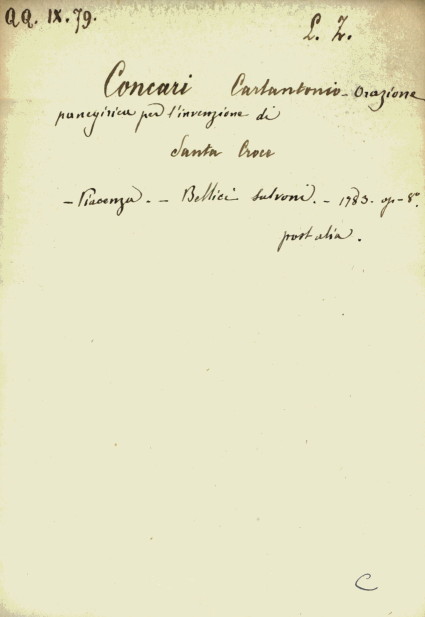 QQ. IX. 79.
L. Z.
Concari Carlantonio - Orazione
panegirica per l'invenzione di
Santa Croce
- Piacenza. - Bellici Salvoni. - 1783. op - 8°.
post alia.
C